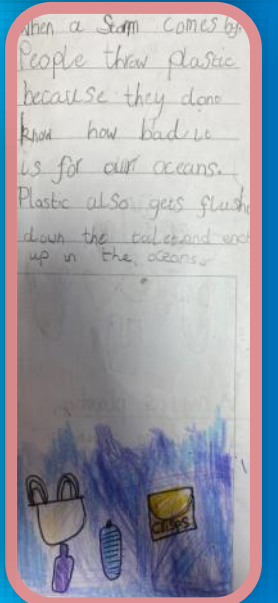 When a Storm comes by.
People throw plastic
because they done
know how bad it
is for our oceans.
Plastic also gets flushe
down the toilet and end
up in the oceans.
CRISPS